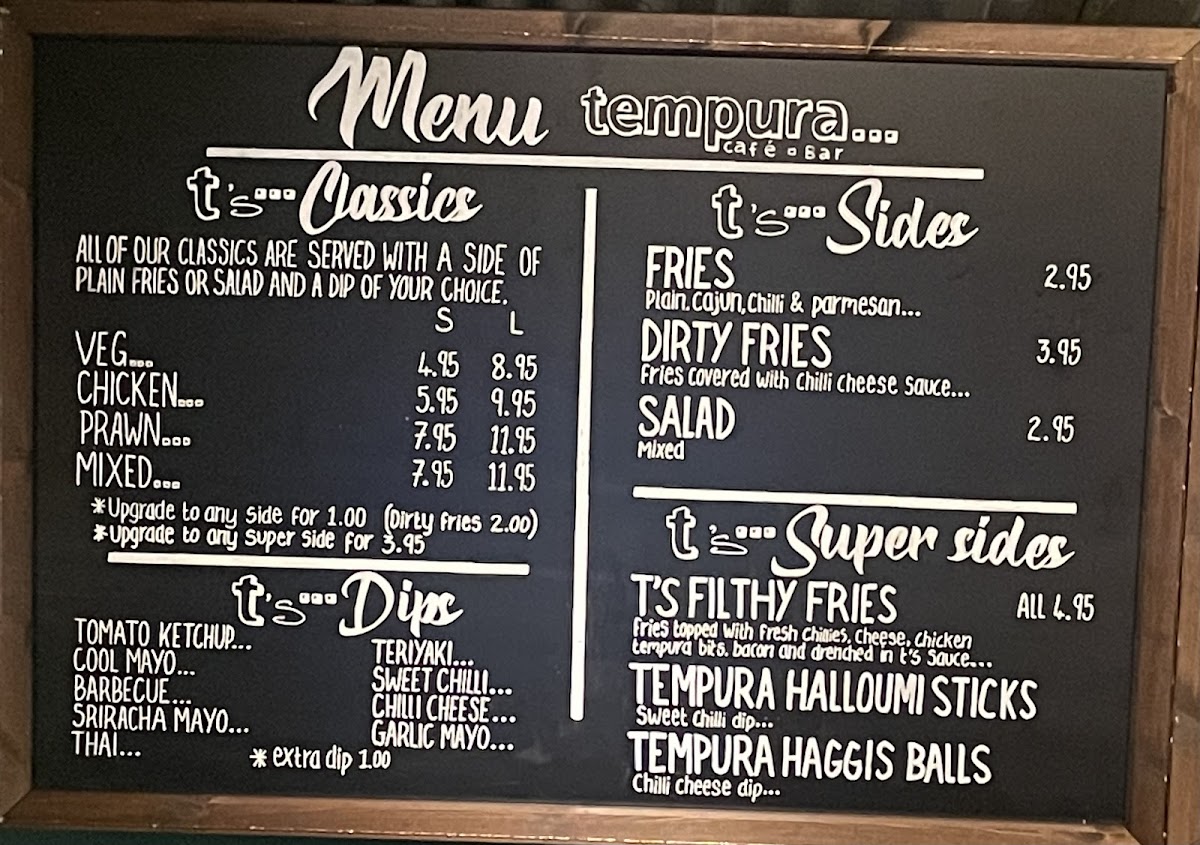 Menu tempura...
café ▫ Bar
t's... Classics
ALL OF OUR CLASSICS ARE SERVED WITH A SIDE OF
PLAIN FRIES OR SALAD AND A DIP OF YOUR CHOICE.
S L
VEG... 4.95 8.95
CHICKEN... 5.95 9.95
PRAWN... 7.95 11.95
MIXED... 7.95 11.95
*Upgrade to any side for 1.00 (Dirty fries 2.00)
*Upgrade to any super side for 3.95
t's... Dips
TOMATO KETCHUP...
COOL MAYO...
BARBECUE...
SRIRACHA MAYO...
THAI...
TERIYAKI...
SWEET CHILLI...
CHILLI CHEESE...
GARLIC MAYO...
* extra dip 1.00
t's... Sides
FRIES 2.95
Plain, Cajun, Chilli & parmesan...
DIRTY FRIES 3.95
Fries covered with Chilli cheese sauce...
SALAD 2.95
Mixed
t's... Super sides
T'S FILTHY FRIES ALL 4.95
Fries topped with fresh chillies, cheese, chicken
tempura bits, bacon and drenched in t's sauce....
TEMPURA HALLOUMI STICKS
Sweet chilli dip...
TEMPURA HAGGIS BALLS
Chilli cheese dip...